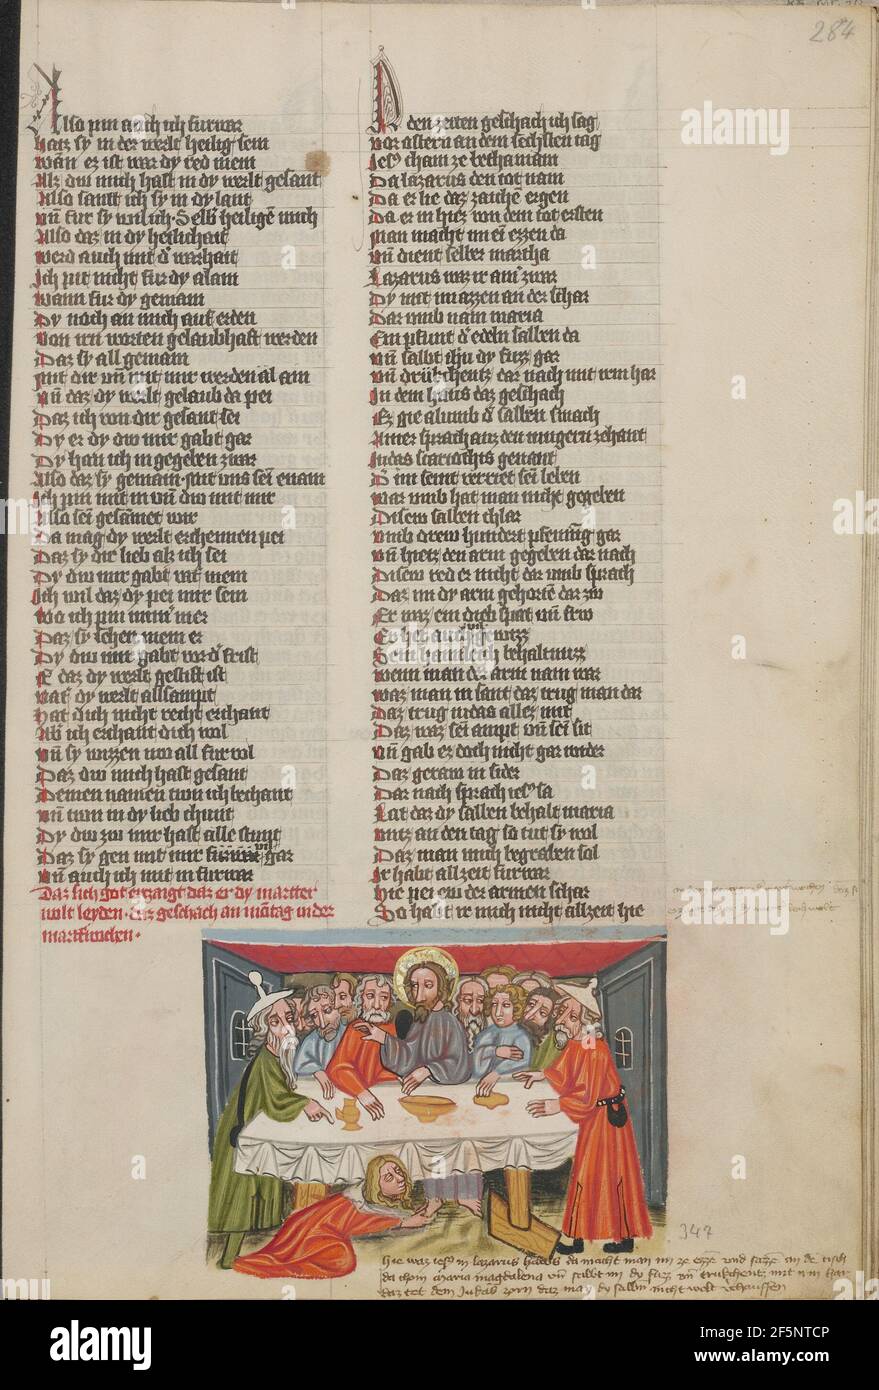 284
Also pin auch ich furwar
Daz sy in der werlt heilig sein
wan er ist war dy red mein
Alz dw mich hast in dy werlt gesant
Also sant ich sy in dy lant
vñ fur sy wil ich Selb heiligē mich
Also daz in dy heilichait
werd auch mit d' warhait
Ich pit nicht fur dy alain
wann fur dy gemain
Dy noch an mich auf erden
Von irn worten gelaubhaft werden
Daz sy all gemain
mit dir vñ mit mir werden al ain
vñ daz dy werlt gelaub da pei
Daz ich von dir gesant sei
Dy er dy dw mir gabt gar
Dy han ich in gegeben zwar
Also daz sy gemain mit uns sei ainam
Ich pin mit in vñ dw mit mir
Also sei gesamet wir
Da mag dy werlt erchennen pei
Daz sy dir lieb alz ich sei
Dy dw mir gabt vat' mein
Ich wil daz dy pei mir sein
wo ich pin
Daz sy schen mein er
Dy dw mir gabt vor d' frist
E daz dy werlt gestift ist
vat' dy werlt allsampt
Hat dich nicht recht erchant
Ab' ich erchant dich wol
vñ sy wizzen nw all fur wol
Daz dw mich hast gesant
Deinen namen tun ich bechant
vñ tun in dy lieb chunt
Dy dw zw mir hast alle stunt
Daz sy gen mit mir gar
vñ auch ich mit in furwar
Daz sich got erzaigt daz er dy martter
wolt leyden daz geschach an māntag in der
marterwochen.
N den zeiten geschach ich sag
vor ostern an dem sechsten tag
Jes' cham ze bethaniam
Da lazarus den tot nam
Da er lie daz zaichē ergen
Da er in hiez von dem tot ersten
Man macht im ei ezzen da
vñ dient selber martha
Lazarus waz ir ain' zwar
Dy mit im azzen an der schar
Dar umb nam maria
Ein pfunt d' edeln salben da
vñ salbt ihū dy fuzz gar
vñ drükchentz dar nach mit irm har
In dem haus daz geschach
Ez gie al umb d' salben smach
Ainer sprach auz den jungern zehant
Judas scariothis genant
D' im seint verriet sei leben
war umb hat man nicht gegeben
Disew salben chlar
vmb drew hundert pfenni̅g gar
vñ hietz den arm gegeben dar nach
Disew red er nicht dar umb sprach
Daz im dy arm gehortē dar zw
Er waz ein dieb spat vñ frw
Sein haimleich behaltnuzz
wenn man der arm nam war
waz man in sant daz trug man dar
Daz trug iudas allez mit
Daz waz sei ampt vñ sei sit
vñ gab ez doch nicht gar wider
Daz geraw in sider
Dar nach sprach ies' sa
Lat dar dy salben behalt maria
vntz an den tag so tut sy wol
Daz man mich begraben sol
Ir habt allzeit furwar
Hie pei ew der armen schar
So habt ir mich nicht allzeit hie
347
hie waz ies' in lazarus haws da macht man im ze ezzē vnd sazz an dē tisch
da chom maria magdalena vñ salbt im dy fuzz vñ trukchentz mit irm har
daz tet dem Judas zorn daz man dy salbm nicht wolt vchauffen
alamy
Image ID: 2F5NTCP
www.alamy.com